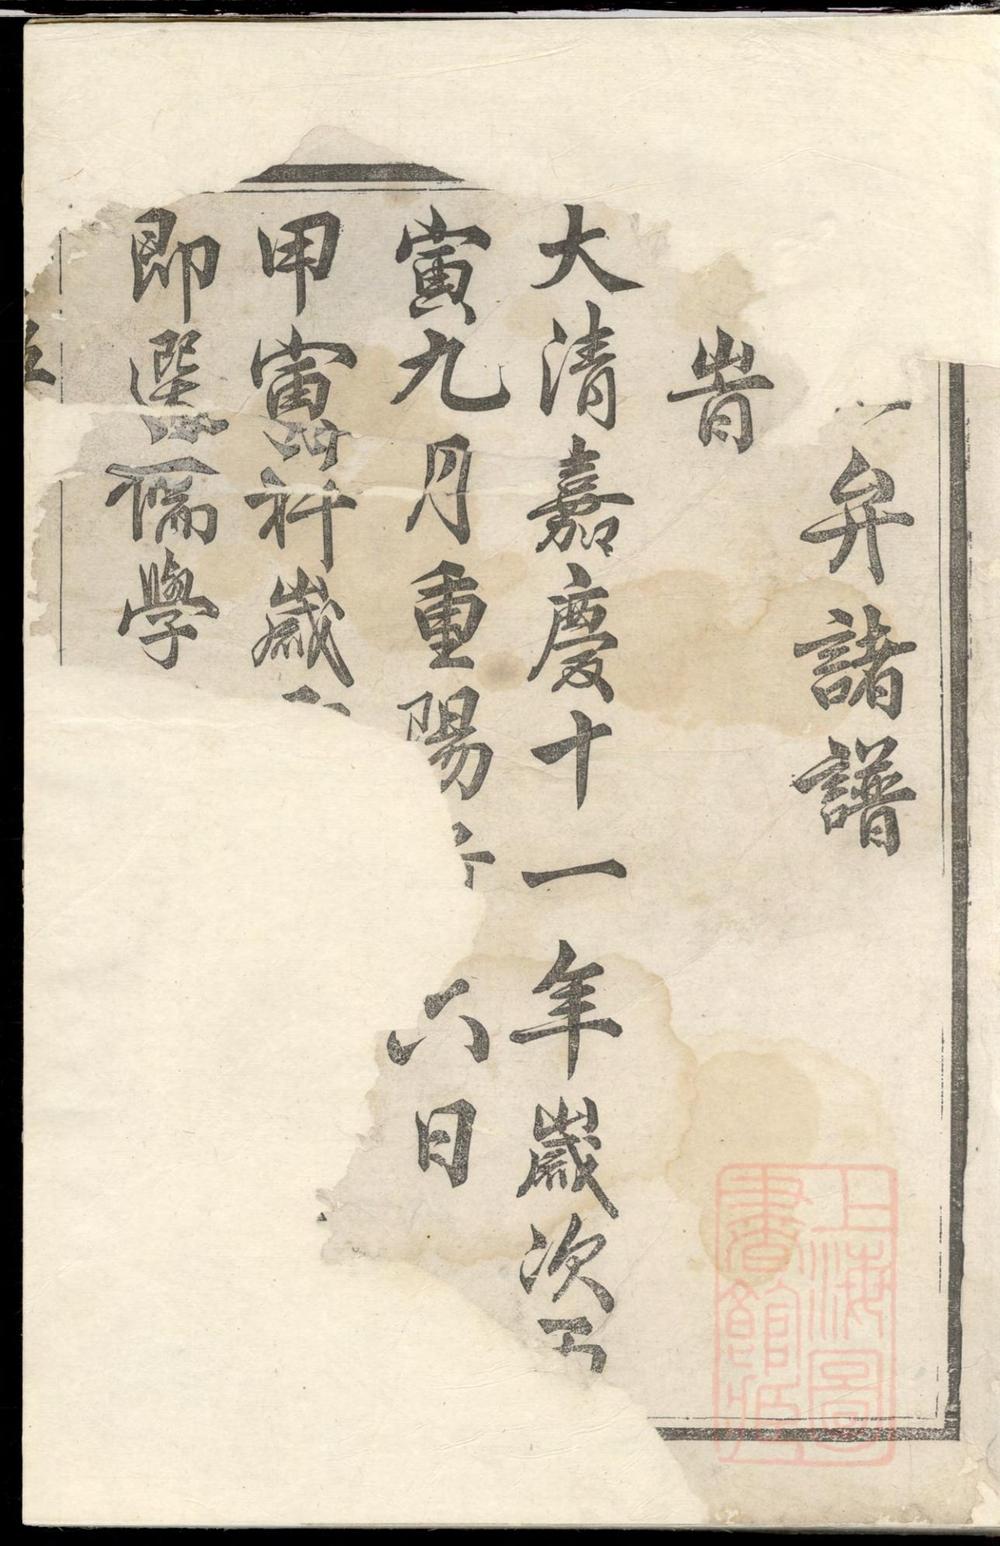 弁諸譜
旹
大清嘉慶十一年歲次丙
寅九月重陽六日
甲寅科歲
即選儒學
上海圖書館藏